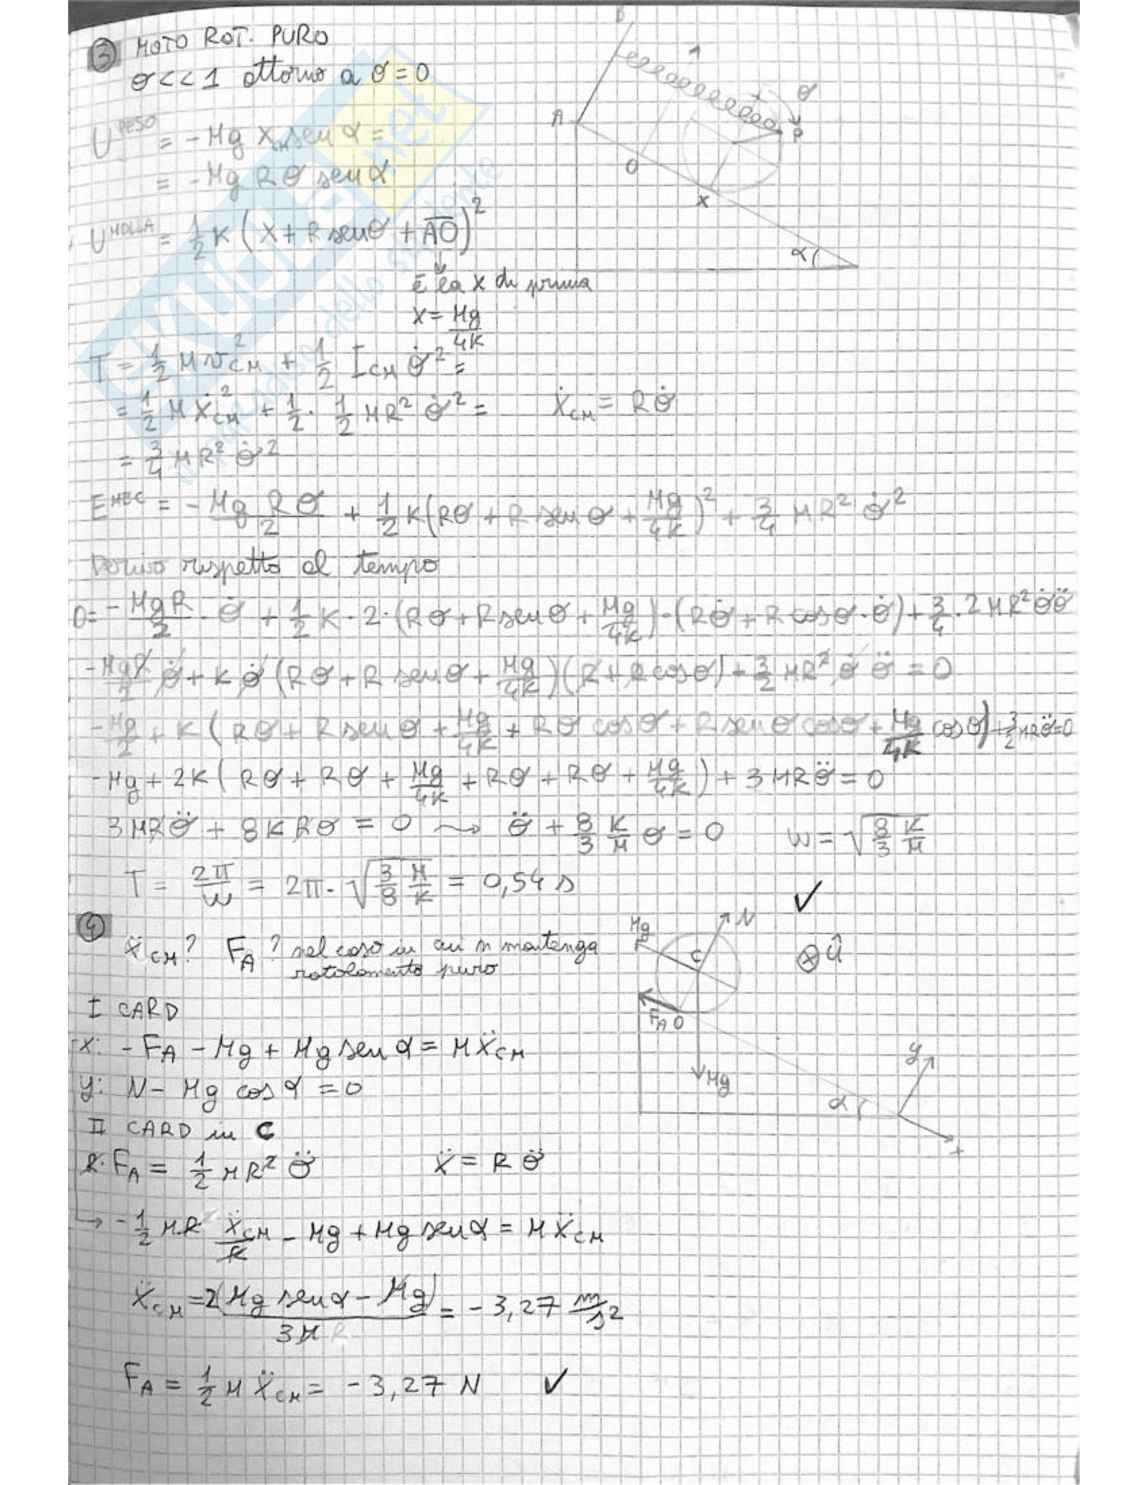 ③ MOTO ROT. PURO
θ<<1 attorno a θ=0
U^PESO = -Mg X_CM sen α =
= -Mg Rθ sen α
U^MOLLA = 1/2 K (X + R senθ + AO)²
è la x di prima
x = Mg/4K
T = 1/2 M v²_CM + 1/2 I_CM θ̇² =
= 1/2 M Ẋ²_CM + 1/2 · 1/2 MR² θ̇² = Ẋ_CM = Rθ̇
= 3/4 MR² θ̇²
E^MEC = - Mg Rθ/2 + 1/2 K (Rθ + R senθ + Mg/4K)² + 3/4 MR² θ̇²
Derivo rispetto al tempo
0 = - MgR/2 · θ̇ + 1/2 K · 2 · (Rθ + R senθ + Mg/4K) · (Rθ̇ + R cosθ · θ̇) + 3/4 · 2 MR² θ̇ θ̈
- MgR/2 θ̇ + K θ̇ (Rθ + R senθ + Mg/4K)(R + R cosθ) + 3/2 MR² θ̇ θ̈ = 0
- Mg/2 + K (Rθ + R senθ + Mg/4K + Rθ cosθ + R senθ cosθ + Mg/4K cosθ) + 3/2 MRθ̈ = 0
- Mg + 2K (Rθ + Rθ + Mg/4K + Rθ + Rθ + Mg/4K) + 3MRθ̈ = 0
3MRθ̈ + 8KRθ = 0 ⤳ θ̈ + 8/3 K/M θ = 0 ω = √(8/3 K/M)
T = 2π/ω = 2π · √(3/8 M/K) = 0,54 s ✓
④ Ẍ_CM? F_A? nel caso in cui si mantenga
rotolamento puro
I CARD
x: -F_A - Mg + Mg sen α = M Ẍ_CM
y: N - Mg cos α = 0
II CARD in C
R·F_A = 1/2 MR² θ̈ Ẍ = Rθ̈
→ - 1/2 MR Ẍ_CM/R - Mg + Mg sen α = M Ẍ_CM
Ẍ_CM = 2(Mg sen α - Mg)/3M = -3,27 m/s²
F_A = 1/2 M Ẍ_CM = -3,27 N ✓
B
A
θ
P
O
X
α
Mg
N
C
û
F_A
O
Mg
y
α
x